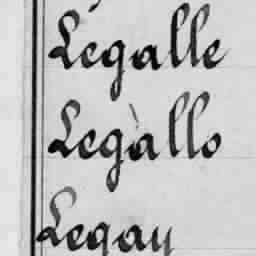 Legalle
Legallo
Legay